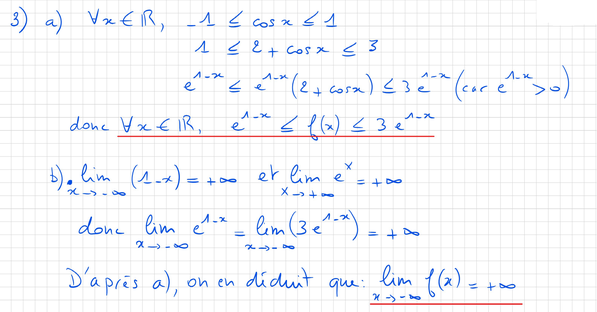 3) a) ∀x ∈ ℝ, -1 ≤ cos x ≤ 1
1 ≤ 2 + cos x ≤ 3
e^{1-x} ≤ e^{1-x}(2 + cos x) ≤ 3 e^{1-x} (car e^{1-x} > 0)
donc ∀x ∈ ℝ, e^{1-x} ≤ f(x) ≤ 3 e^{1-x}
b) • lim_{x→-∞} (1-x) = +∞ et lim_{x→+∞} e^x = +∞
donc lim_{x→-∞} e^{1-x} = lim_{x→-∞} (3 e^{1-x}) = +∞
D'après a), on en déduit que: lim_{x→-∞} f(x) = +∞